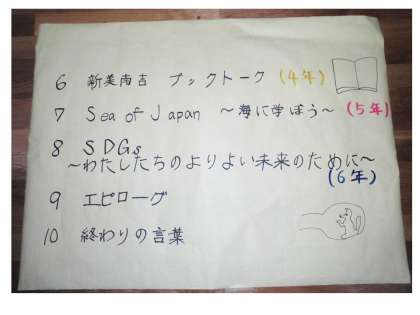 6 新美南吉 ブックトーク (4年)
7 Sea of Japan ～海に学ぼう～ (5年)
8 SDGs
～わたしたちのよりよい未来のために～
(6年)
9 エピローグ
10 終わりの言葉